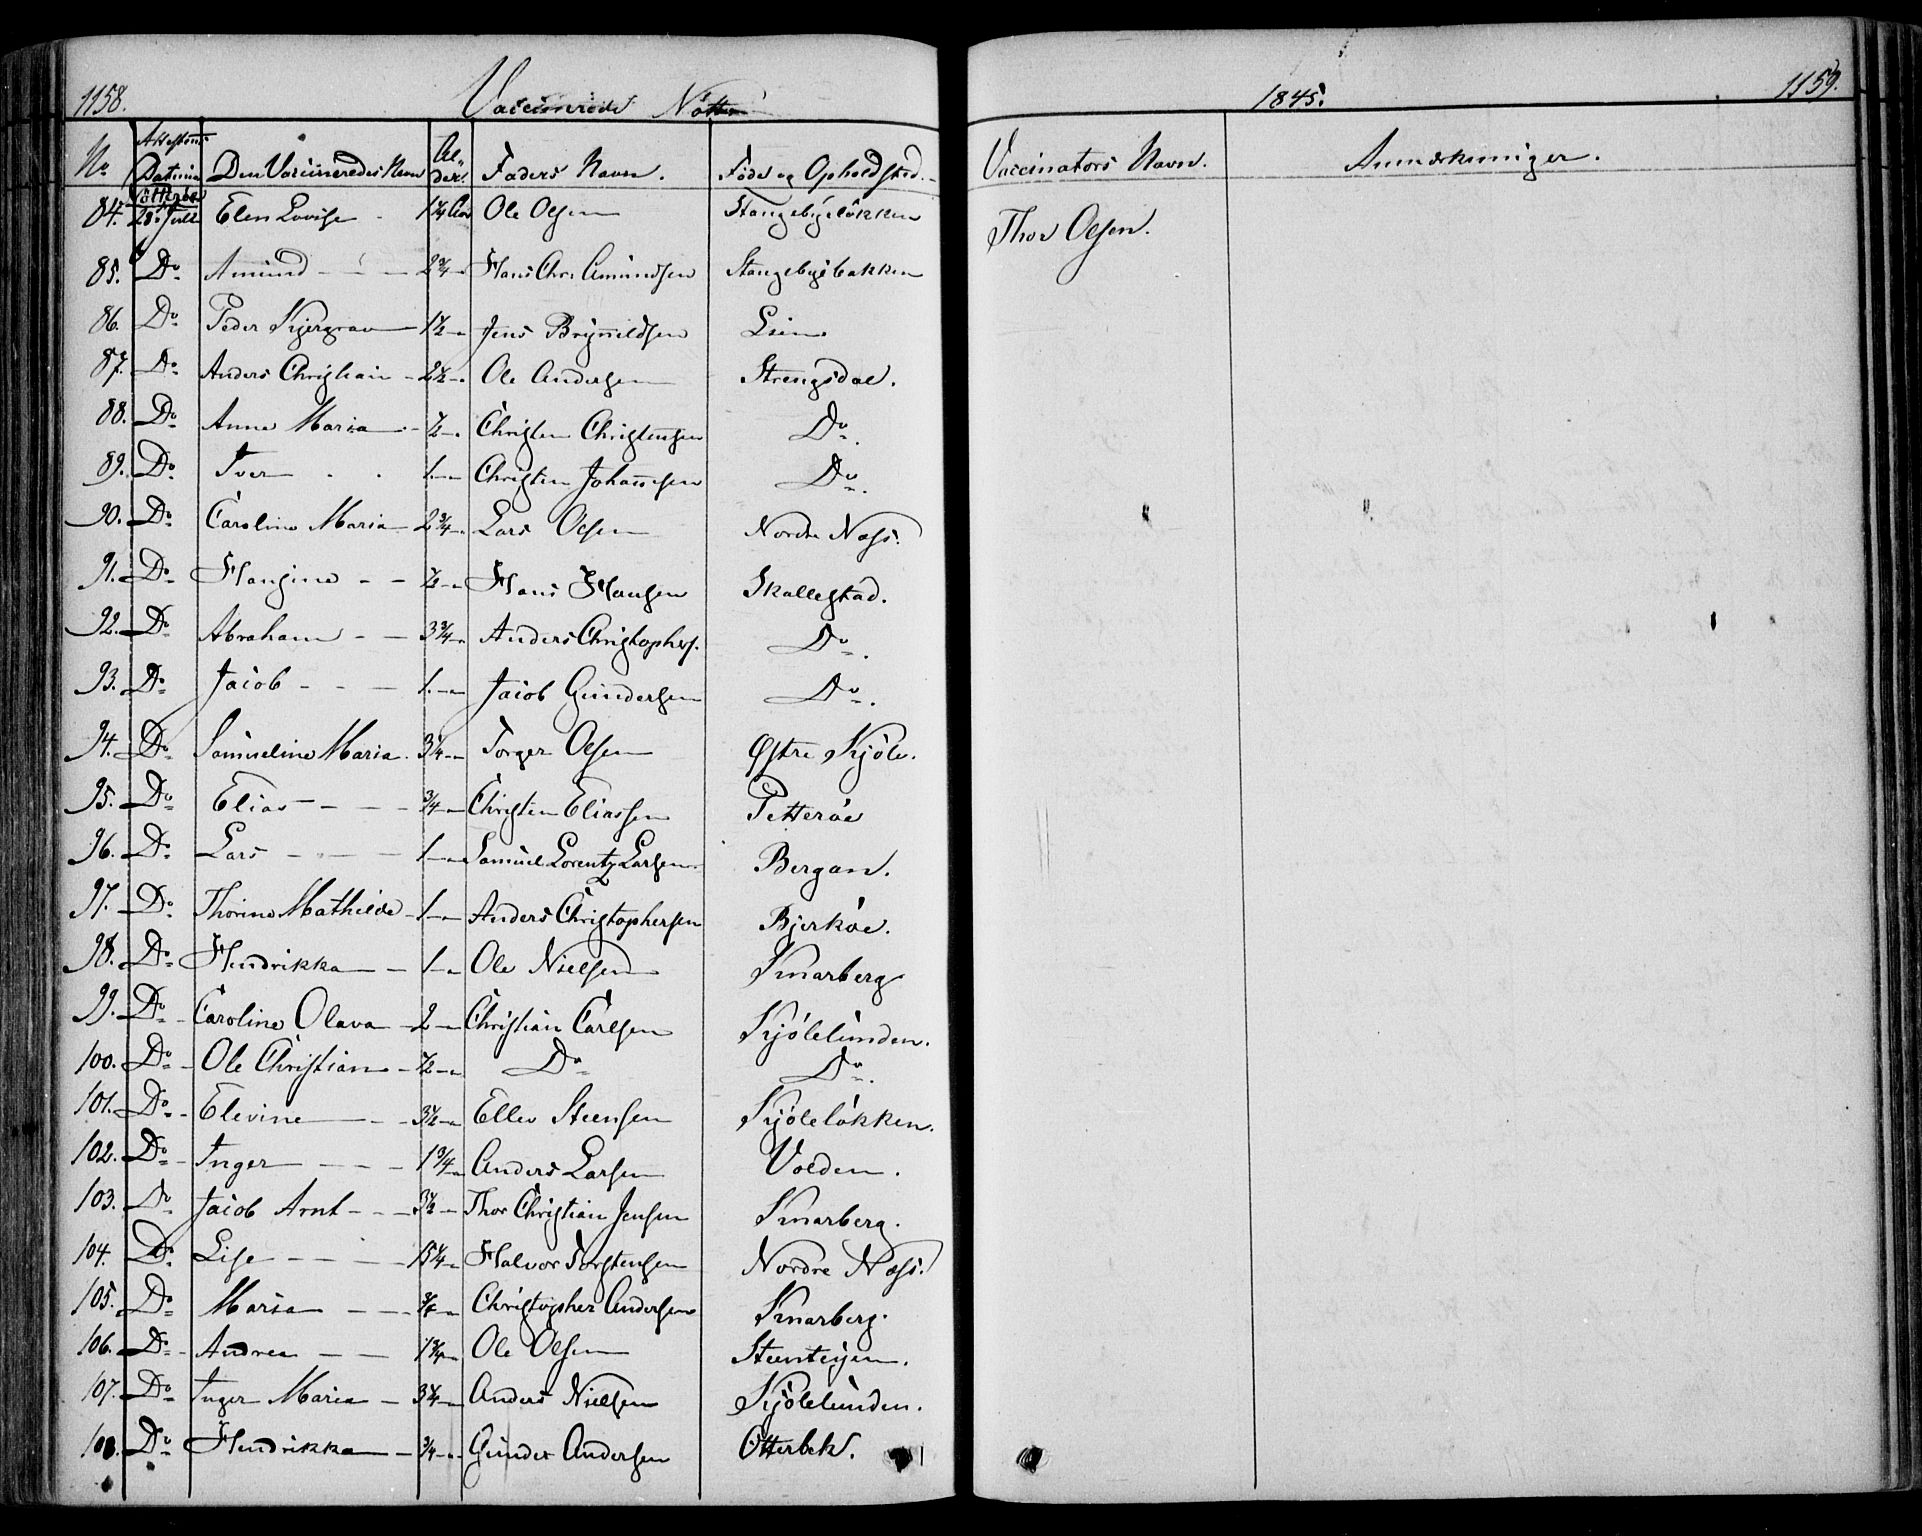 1158. Vaccinerede Nötterö 1845. 1159.
No Attestens Datum Den Vaccineredes Navn Alder. Faders Navn. Föde og Opholdsted. Vaccinators Navn. Anmærkninger.
84. 28 Juli Elen Lovise 1 1/4 Aar Ole Olsen Stangebyeløkken Thor Olsen.
85. Do Amund 2 3/4 Hans Chr. Amundsen Stangebyebakken
86. Do Peder Kjergrav 1 1/2 Jens Brynildsen
87. Do Anders Christian 2 1/2 Ole Andersen Strengsdal.
88. Do Anne Maria 1/2 Christen Christensen Do
89. Do Iver 1 Christen Johannesen Do
90. Do Caroline Maria 2 3/4 Lars Olsen Nordre Næss.
91. Do Hansine 1/2 Hans Hansen Skallestad.
92. Do Abraham 3 3/4 Anders Christophers. Do
93. Do Jacob 1 Jacob Gundersen Do
94. Do Samueline Maria 3 1/4 Torger Olsen Østre Kjöle.
95. Do Elias 3/4 Christen Eliassen Petteröe
96. Do Lars 1 Samuel Lorentz Larsen Bergan.
97. Do Thorine Mathilde 1 Anders Christophersen Bjerköe.
98. Do Hendrikka 1 Ole Nielsen Knarberg
99. Do Caroline Olava 2 Christian Carlsen Kjölelunden.
100. Do Ole Christian 1/2 Do Do
101. Do Elevine 3 1/2 Ellev Steensen Kjöleløkken.
102. Do Inger 1 3/4 Anders Larsen Volden.
103. Do Jacob Arnt 3 1/2 Thor Christian Jensen Knarberg.
104. Do Lise 15 1/4 Halvor Torstensen Nordre Næss.
105. Do Maria Christopher Andersen Knarberg.
106. Do Andrea 1 3/4 Ole Olsen
107. Do Inger Maria 3 1/4 Anders Nielsen Kjölelunden.
108. Do Hendrikka 3/4 Gunder Andersen Otterbek.